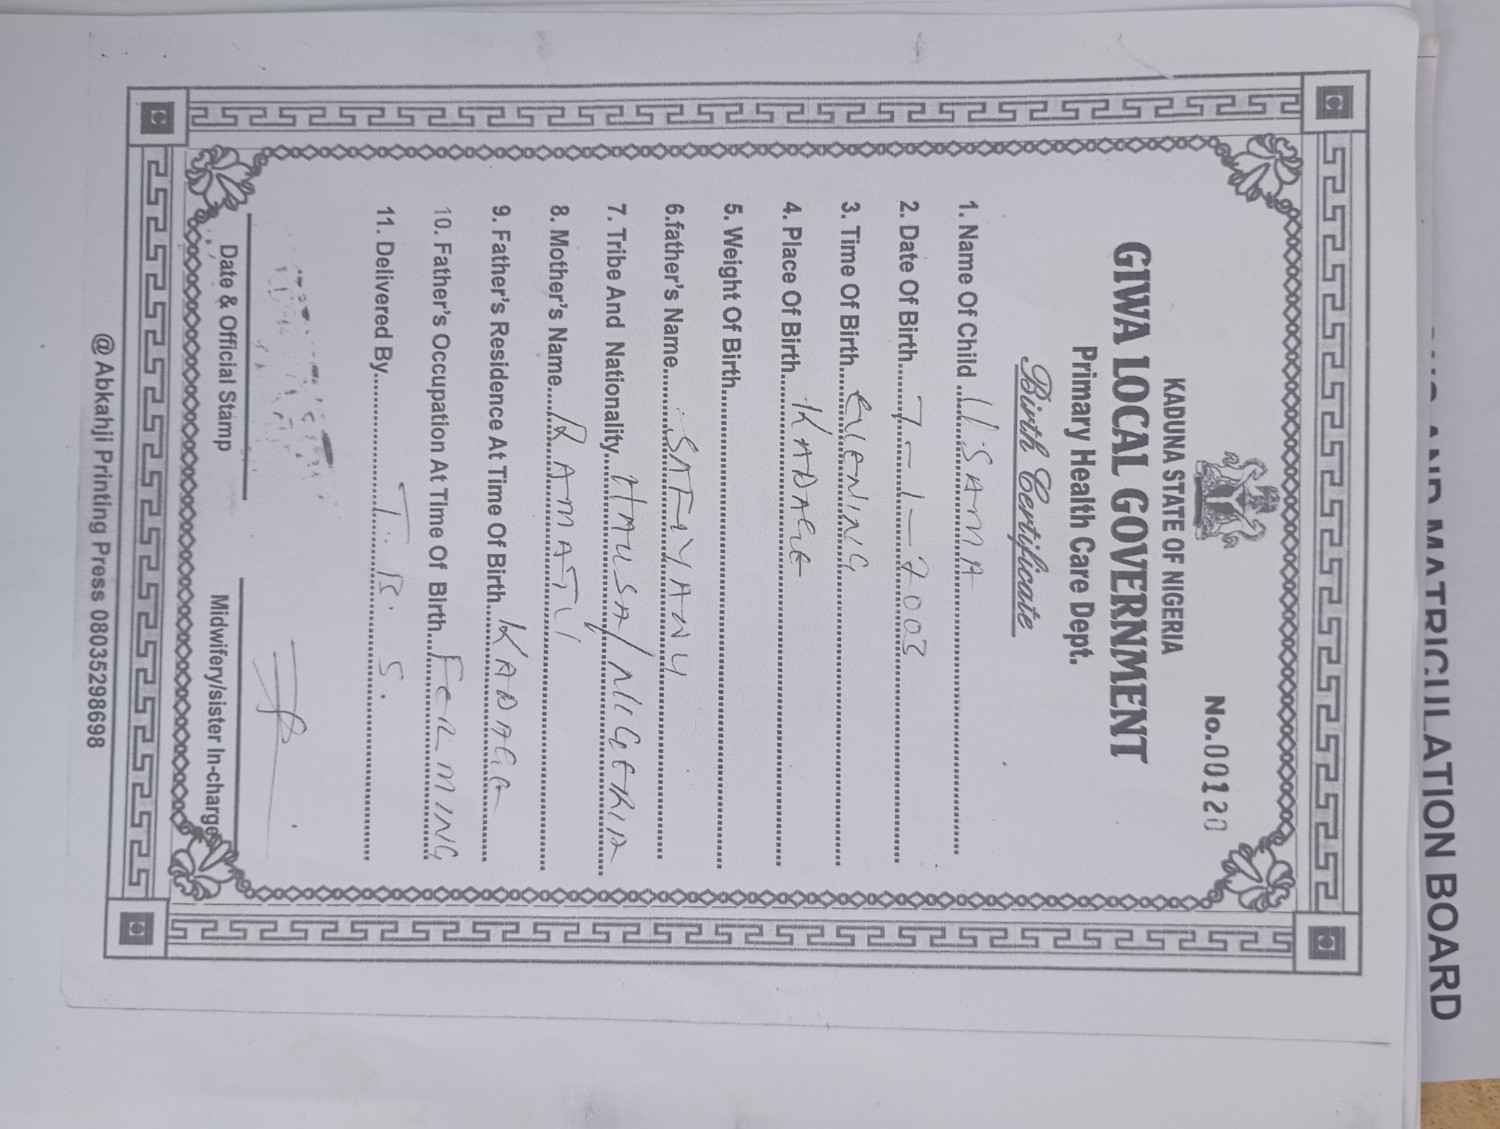 No.00120
KADUNA STATE OF NIGERIA
GIWA LOCAL GOVERNMENT
Primary Health Care Dept.
Birth Certificate
1. Name Of Child ....USAMA
2. Date Of Birth....7-1-2003
3. Time Of Birth....EVENING
4. Place Of Birth....KADAGE
5. Weight Of Birth....
6.father's Name....SAFIYANU
7. Tribe And Nationality....HAUSA/NIGERIA
8. Mother's Name....RAMATU
9. Father's Residence At Time Of Birth....KADAGE
10. Father's Occupation At Time Of Birth....FERMING
11. Delivered By....T.B.S.
Date & Official Stamp
Midwifery/sister In-charge
@ Abkahji Printing Press 08035298698
AND MATRICULATION BOARD